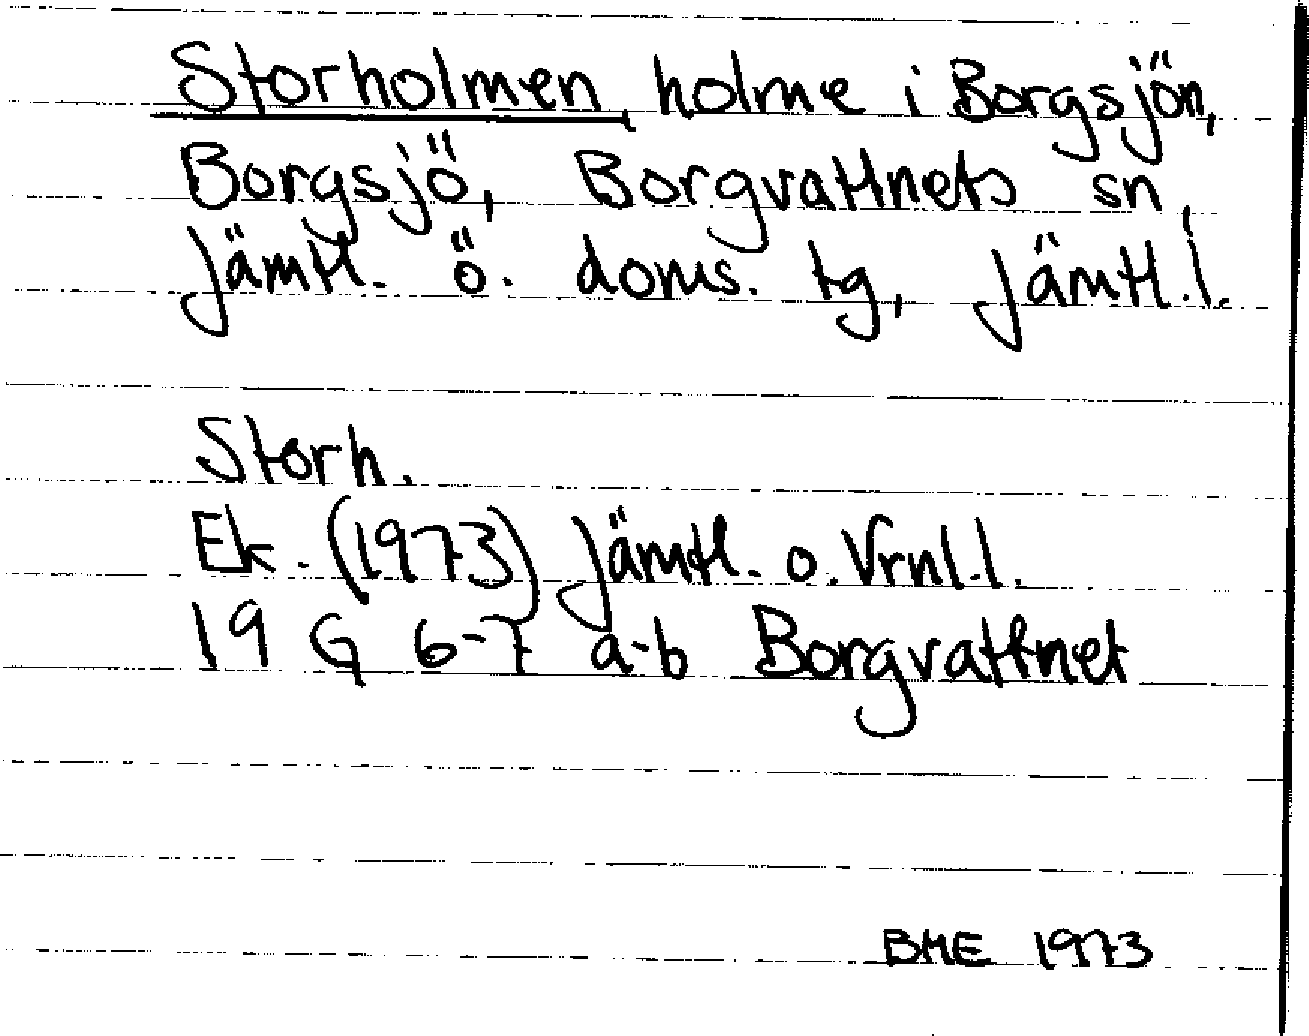 Storholmen, holme i Borgsjön,
Borgsjö, Borgvattnets sn,
Jämtl. ö. doms. tg, Jämtl.l.
Storh.
Ek. (1973) Jämtl. o. Vrnl.l.
19 G 6-7 a-b Borgvattnet
BME 1973